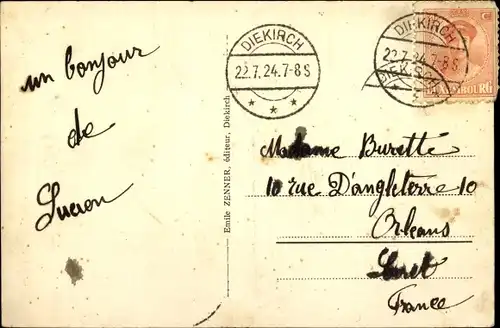 un bonjour
de
Lucien
Emile ZENNER, éditeur, Diekirch
DIEKIRCH
22.7.24.7-8S
DIEKIRCH
22.7.24.7-8S
LUXEMBOURG
Madame Buretté
10 rue D'angleterre 10
Orléans
Loiret
France